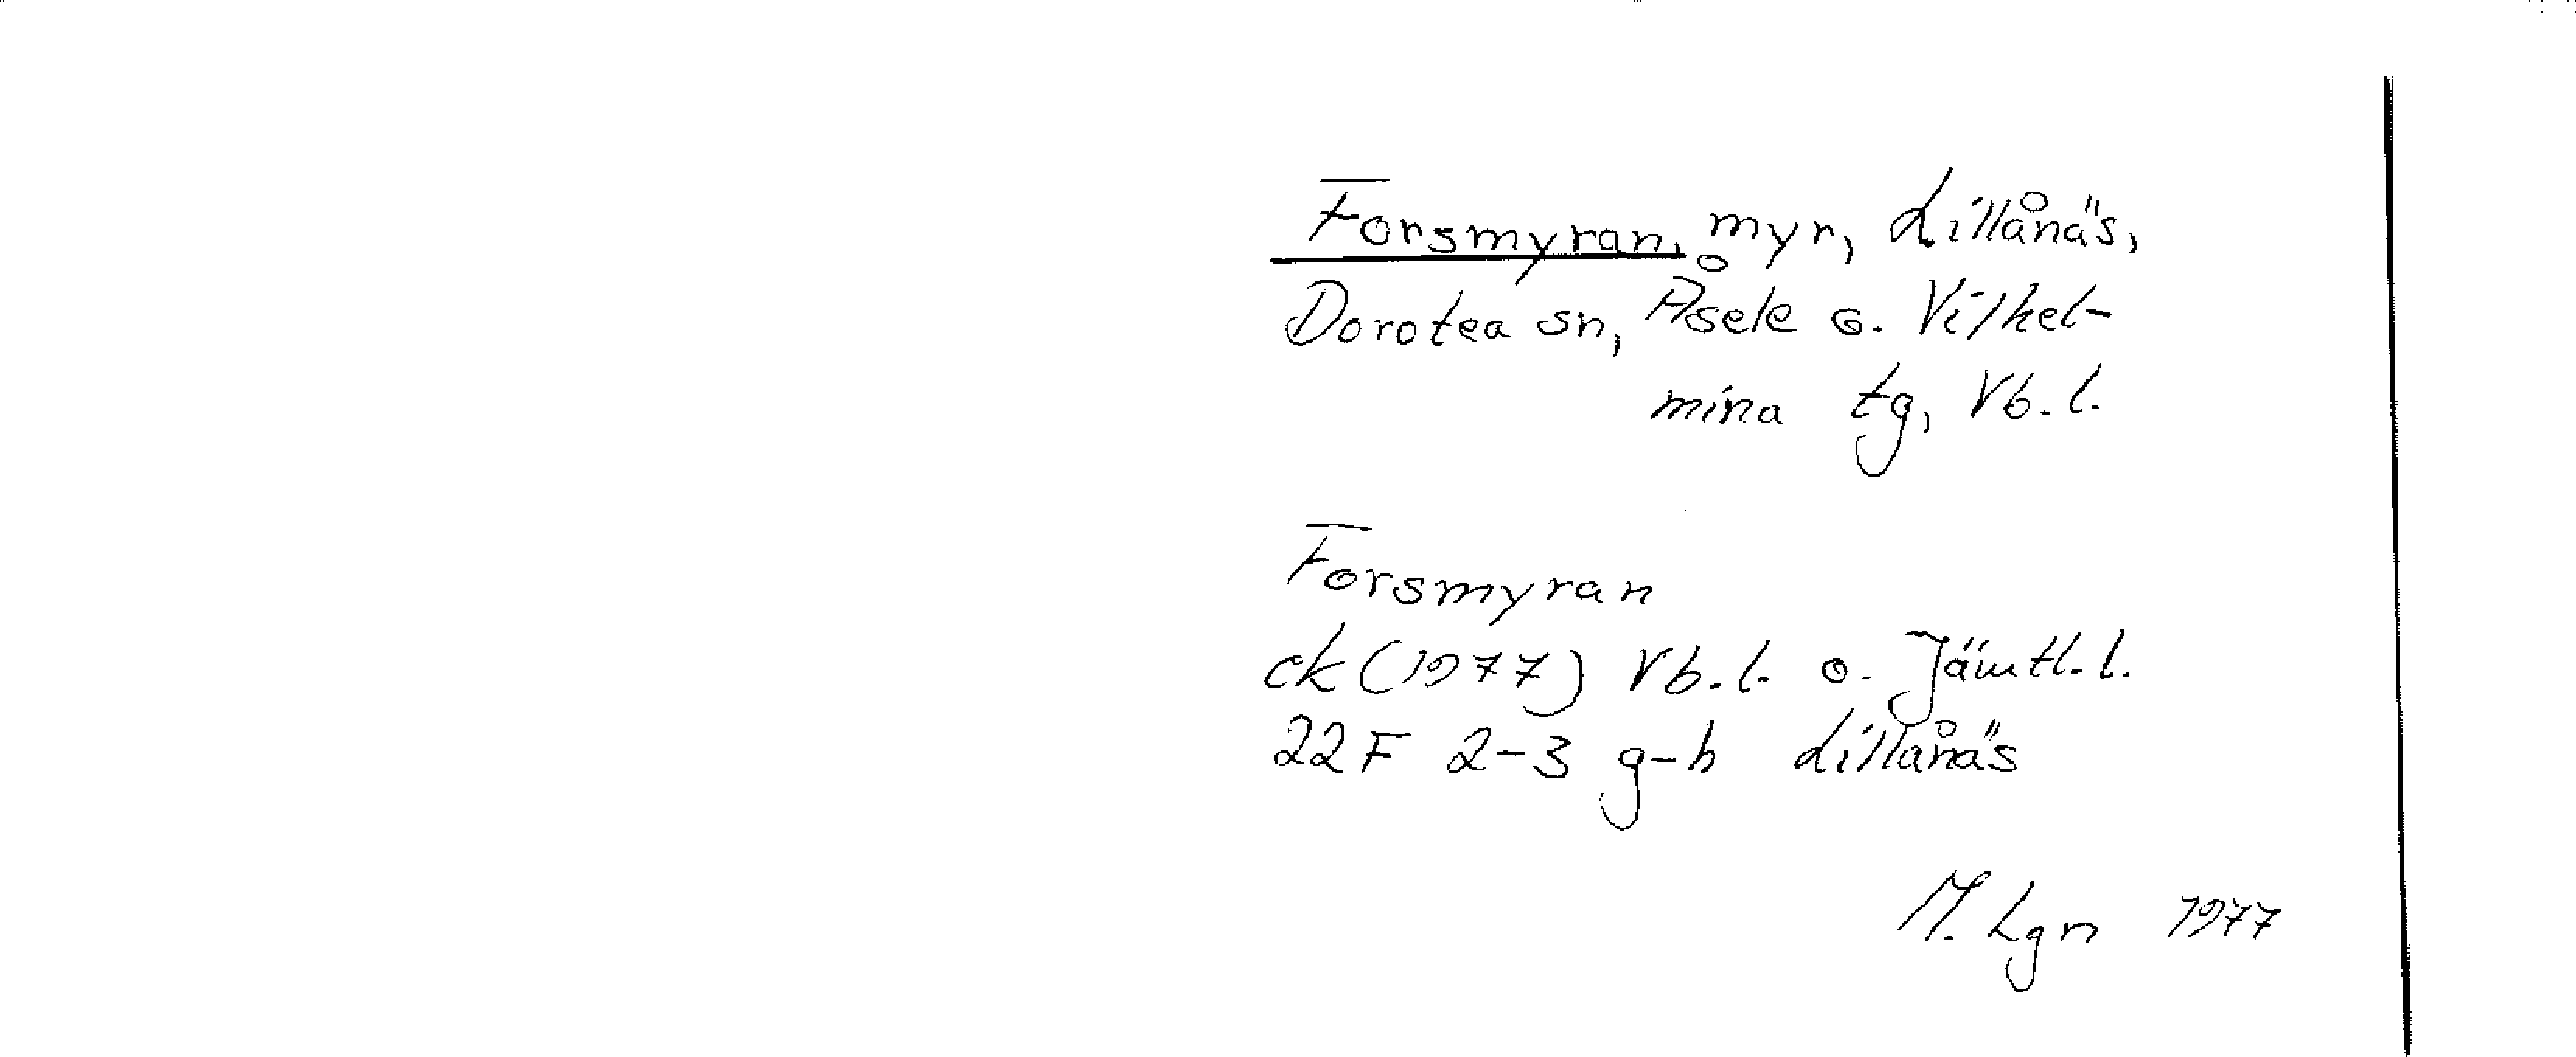 Forsmyran, myr, Lillånäs,
Dorotea sn, Åsele o. Vilhel-
mina tg, Vb. l.
Forsmyran
ek (1977) Vb. l. o. Jämtl. l.
22 F 2-3 g-h Lillånäs
M. Lgn 1977